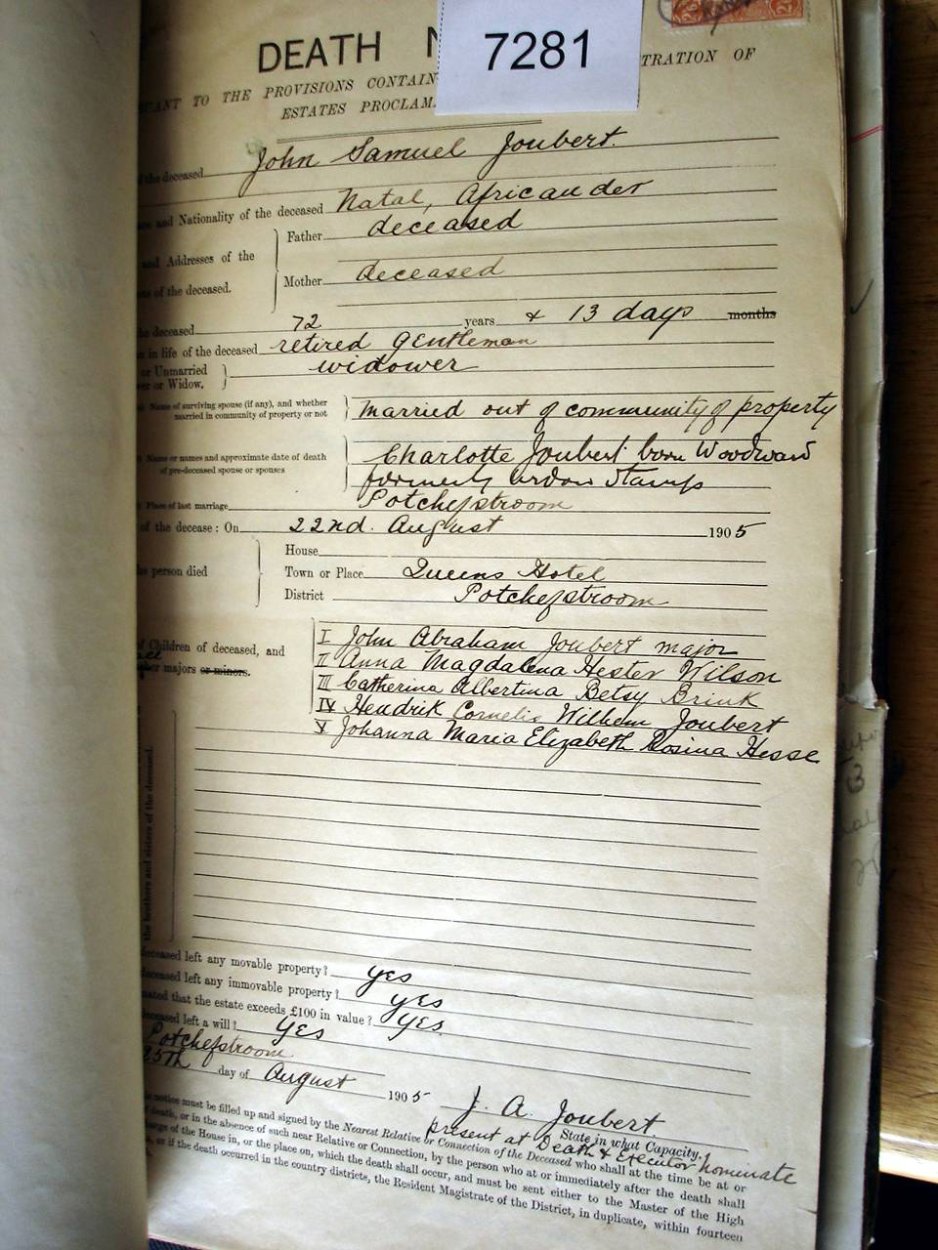 DEATH N
7281
TRATION OF
TO THE PROVISIONS CONTAIN
ESTATES PROCLAM
the deceased John Samuel Joubert.
and Nationality of the deceased Natal, Africander
Father deceased
and Addresses of the
of the deceased.
Mother deceased
deceased 72 years & 13 days months
in life of the deceased retired gentleman
or Unmarried
or Widow. widower
Name of surviving spouse (if any), and whether
married in community of property or not
Married out of community of property
Name or names and approximate date of death
of pre-deceased spouse or spouses
Charlotte Joubert born Woodward
formerly Stamp
Place of last marriage Potchefstroom
of the decease: On 22nd. August 1905
House
person died Town or Place Queens Hotel
District Potchefstroom
Children of deceased, and
majors or minors.
I John Abraham Joubert major
II Anna Magdalena Hester Wilson
III Catherina Albertina Betsy Brink
IV Hendrik Cornelis Wilhelm Joubert
V Johanna Maria Elizabeth Rosina Hesse
the brothers and sisters of the deceased.
deceased left any movable property? yes
deceased left any immovable property? yes
that the estate exceeds £100 in value? yes
deceased left a will? yes
Potchefstroom
25th day of August 1905
J. A. Joubert
State in what Capacity.
present at Death & Executor nominate
notice must be filled up and signed by the Nearest Relative or Connection of the Deceased who shall at the time be at or
death, or in the absence of such near Relative or Connection, by the person who at or immediately after the death shall
charge of the House in, or the place on, which the death shall occur, and must be sent either to the Master of the High
or if the death occurred in the country districts, the Resident Magistrate of the District, in duplicate, within fourteen